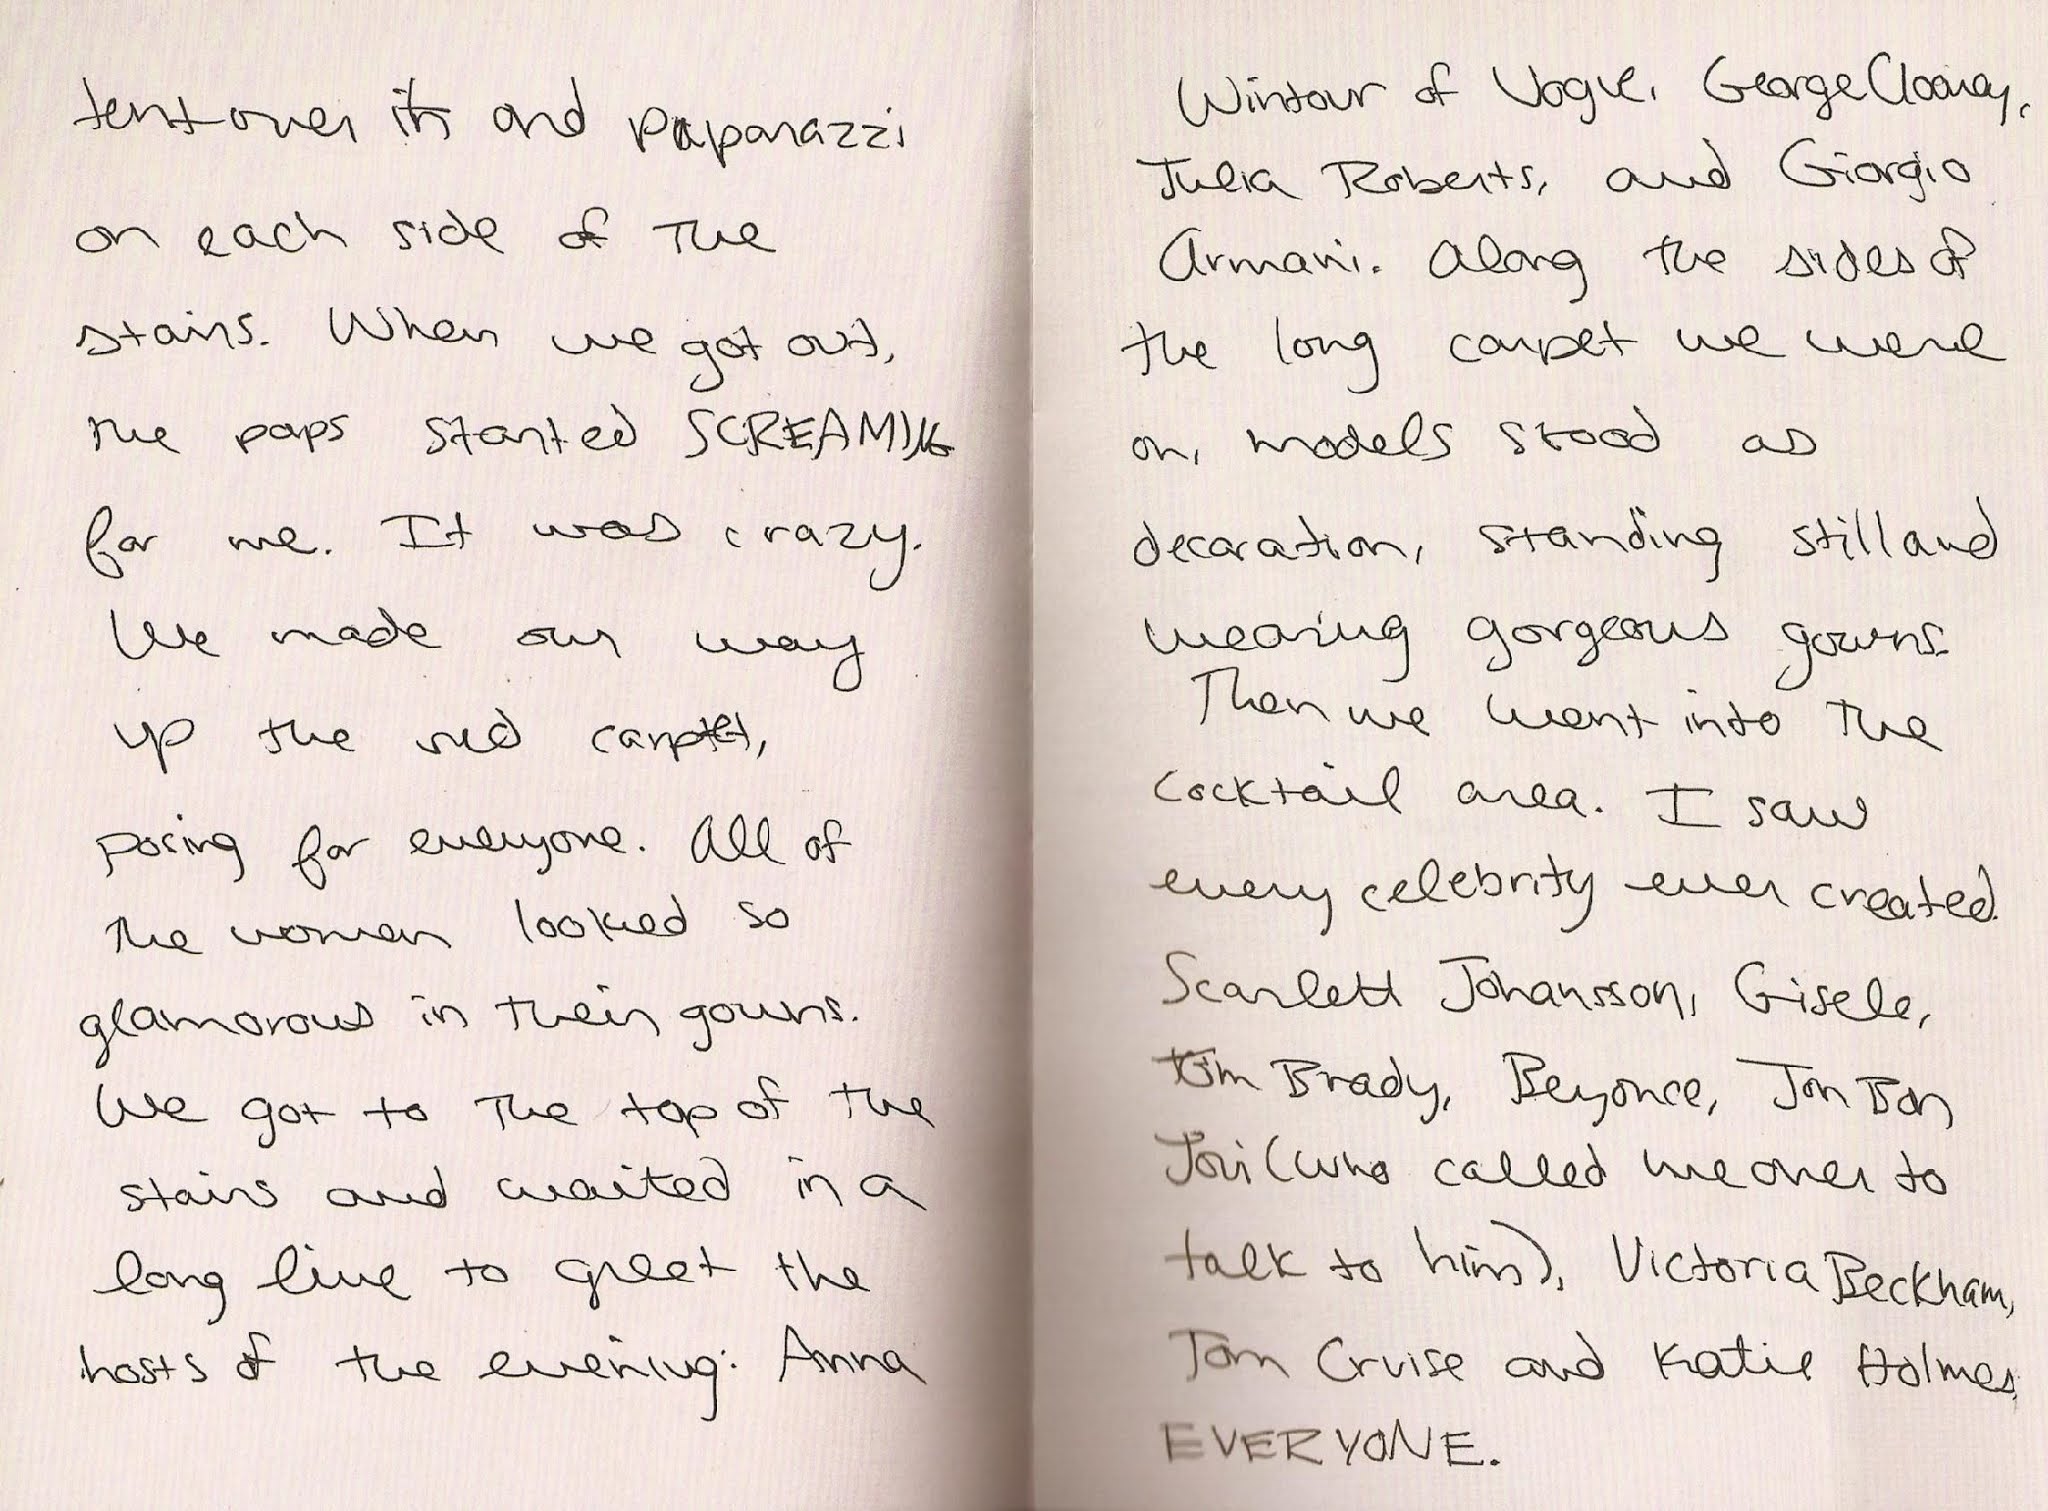 tent over it, and paparazzi
on each side of the
stairs. When we got out,
the paps started SCREAMING
for me. It was crazy.
We made our way
up the red carpet,
posing for everyone. All of
the women looked so
glamorous in their gowns.
We got to the top of the
stairs and waited in a
long line to greet the
hosts of the evening: Anna
Wintour of Vogue, George Clooney,
Julia Roberts, and Giorgio
Armani. Along the sides of
the long carpet we were
on, models stood as
decoration, standing still and
wearing gorgeous gowns.
Then we went into the
cocktail area. I saw
every celebrity ever created.
Scarlett Johansson, Gisele,
Tom Brady, Beyonce, Jon Bon
Jovi (who called me over to
talk to him), Victoria Beckham,
Tom Cruise and Katie Holmes,
EVERYONE.